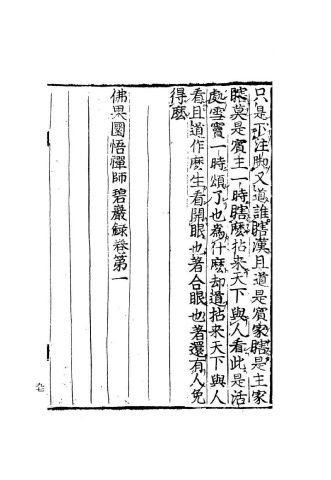 只是下注脚又道誰瞎漢且道是賓家瞎是主家
瞎莫是賓主一時瞎麽拈来天下與人看此是活
處雪竇一時頌了也為什麽却道拈来天下與人
看且道作麽生看開眼也著合眼也著還有人免
得麽
佛果圜悟禪師碧巖録卷第一